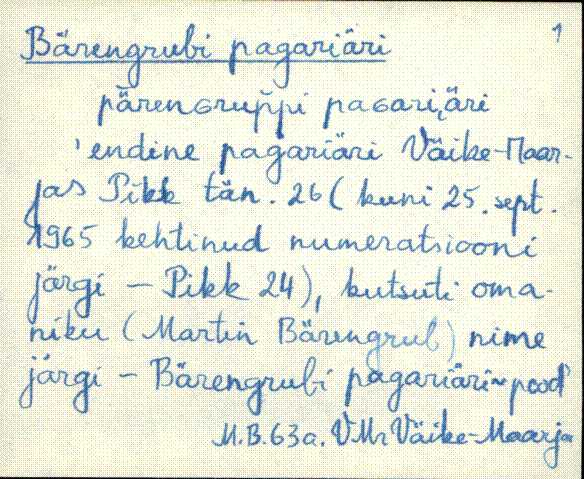 1
Bärengrubi pagariäri
pärenGruppi paGari,äri
'endine pagariäri Väike-Maar-
jas Pikk tän. 26 (kuni 25. sept.
1965 kehtinud numeratsiooni
järgi - Pikk 24), kutsuti oma-
niku (Martin Bärengrub) nime
järgi - Bärengrubi pagariäri ~ pood'
M.B.63a. VMr Väike-Maarja